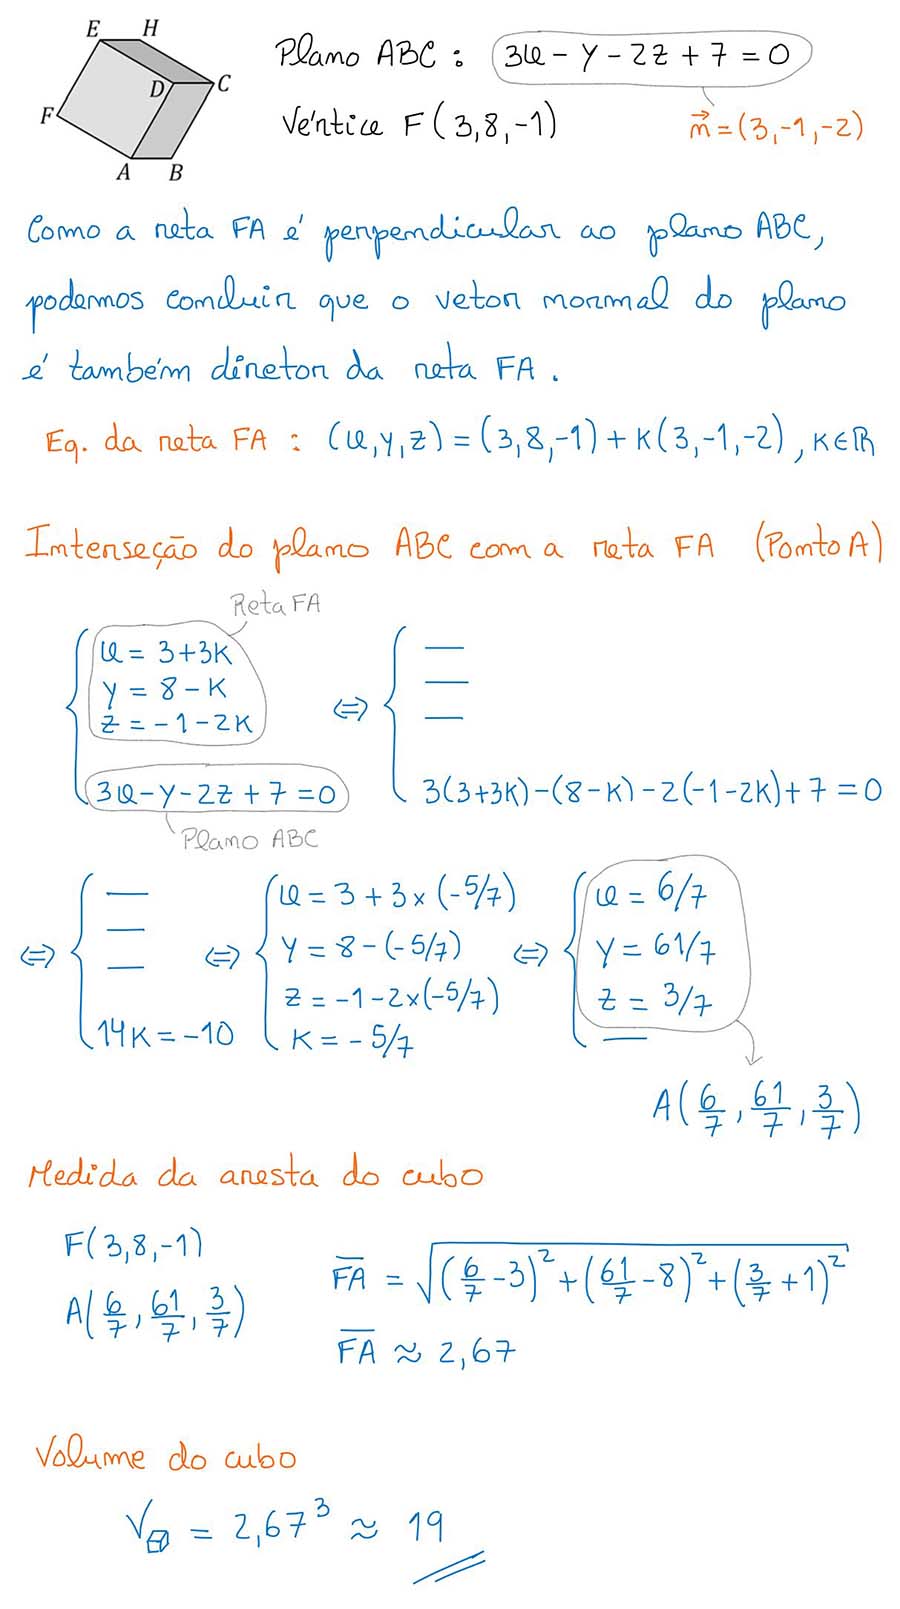 E H
D C
F
A B
Plano ABC : 3x - y - 2z + 7 = 0
Vértice F(3,8,-1)
n⃗ = (3,-1,-2)
Como a reta FA é perpendicular ao plano ABC,
podemos concluir que o vetor normal do plano
é também diretor da reta FA.
Eq. da reta FA : (x,y,z) = (3,8,-1) + k(3,-1,-2), k∈ℝ
Interseção do plano ABC com a reta FA (Ponto A)
Reta FA
{ x = 3+3k
y = 8-k
z = -1-2k
3x-y-2z+7=0
Plano ABC
⇔ { —
—
—
3(3+3k)-(8-k)-2(-1-2k)+7=0
⇔ { —
—
—
14k = -10
⇔ { x = 3+3×(-5/7)
y = 8-(-5/7)
z = -1-2×(-5/7)
k = -5/7
⇔ { x = 6/7
y = 61/7
z = 3/7
—
A(6/7, 61/7, 3/7)
Medida da aresta do cubo
F(3,8,-1)
A(6/7, 61/7, 3/7)
F̅A̅ = √((6/7-3)²+(61/7-8)²+(3/7+1)²)
F̅A̅ ≈ 2,67
Volume do cubo
V = 2,67³ ≈ 19